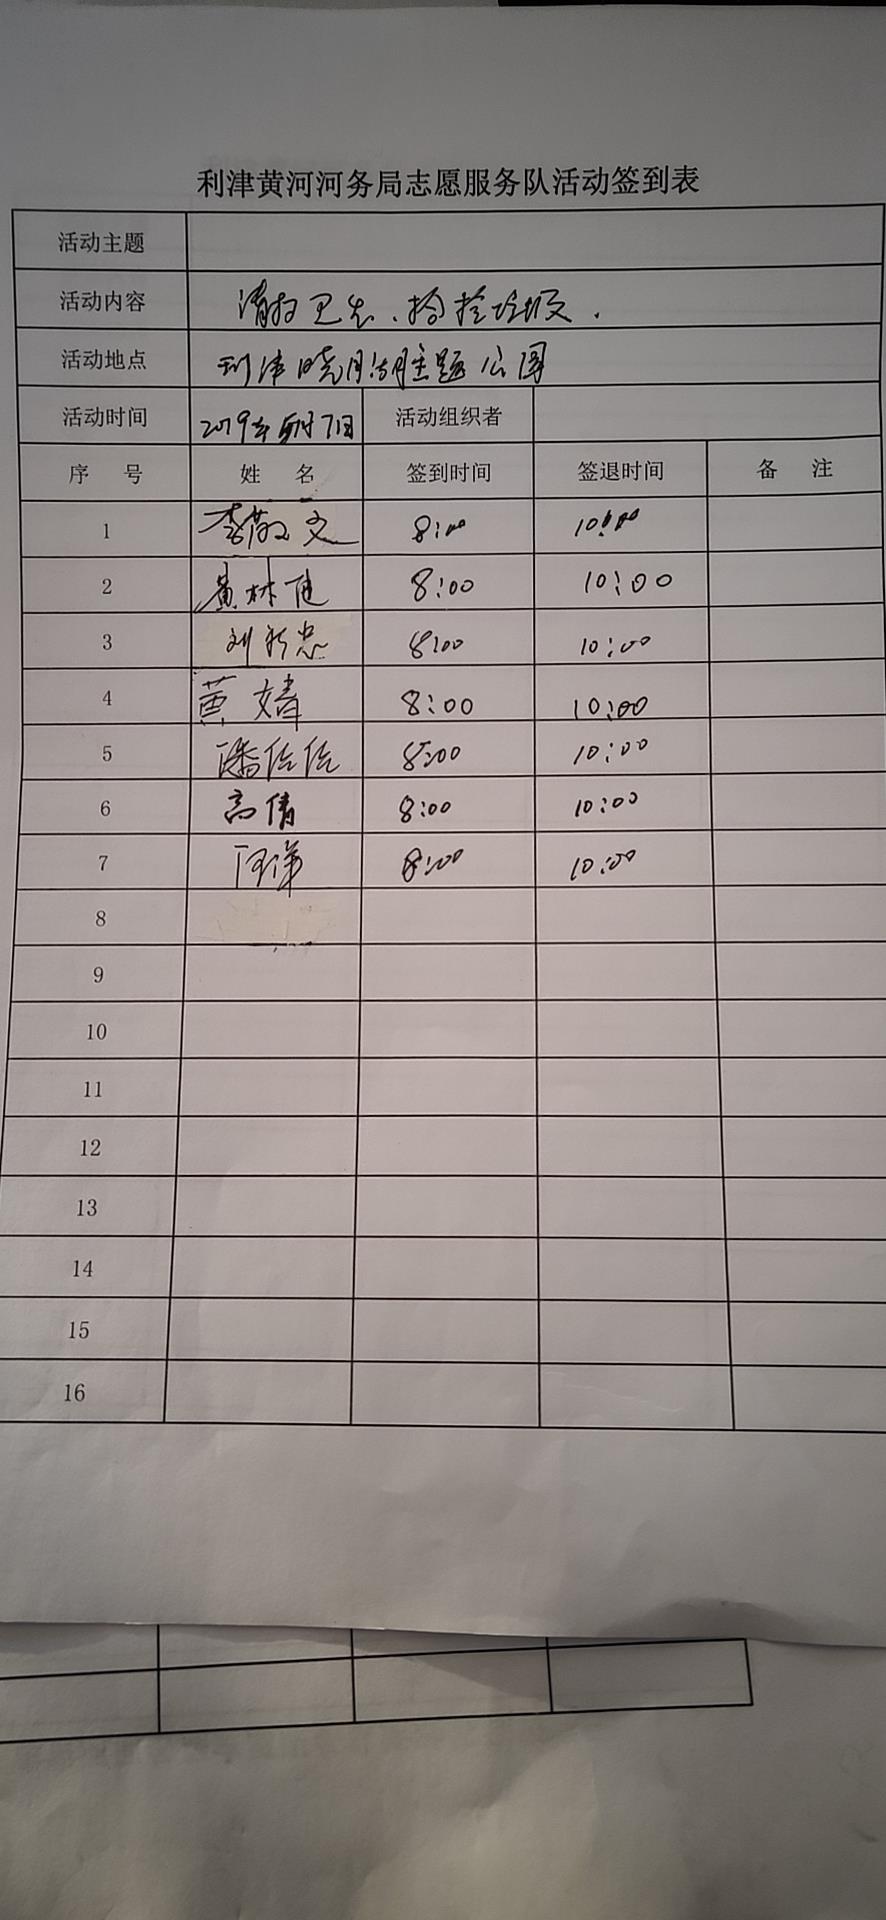 利津黄河河务局志愿服务队活动签到表
活动主题
活动内容 清扫卫生、捡拾垃圾.
活动地点 利津晓月湖主题公园
活动时间 2019年5月7日 活动组织者
序 号 姓 名 签到时间 签退时间 备 注
1 李敬文 8:00 10:00
2 黄林 8:00 10:00
3 刘新忠 8:00 10:00
4 黄婧 8:00 10:00
5 8:00 10:00
6 高倩 8:00 10:00
7 8:00 10:00
8
9
10
11
12
13
14
15
16